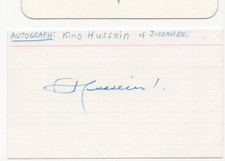 AUTOGRAPH: King Hussein of JORDANIEN.
Hussein I.